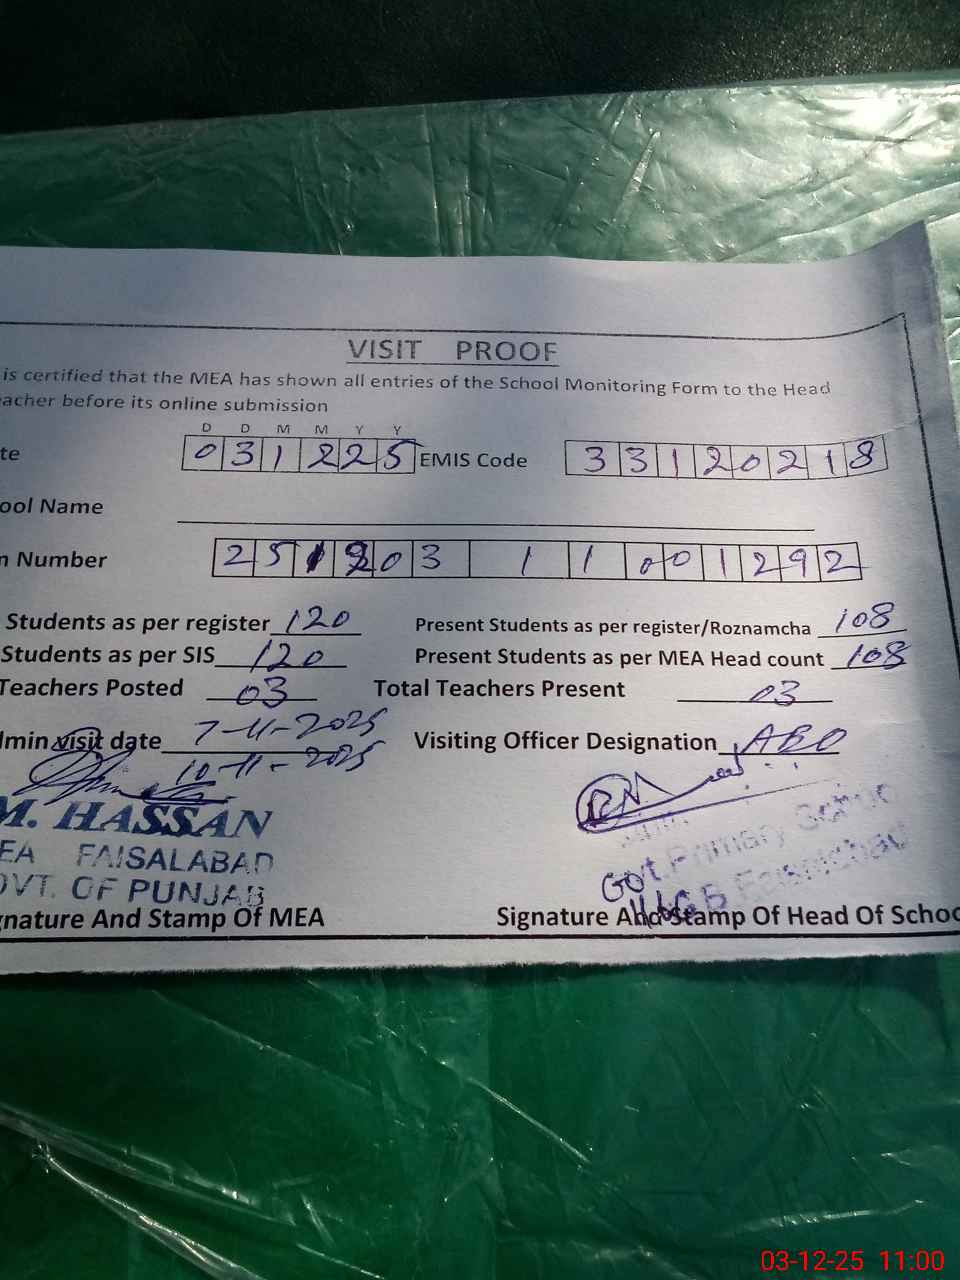 VISIT PROOF
is certified that the MEA has shown all entries of the School Monitoring Form to the Head
acher before its online submission
D D M M Y Y
te 0 3 1 2 2 5 EMIS Code 3 3 1 2 0 2 1 8
ool Name
n Number 2 5 1 2 0 3 1 1 0 0 1 2 9 2
Students as per register 120 Present Students as per register/Roznamcha 108
Students as per SIS 120 Present Students as per MEA Head count 108
Teachers Posted 03 Total Teachers Present 03
dmin visit date 7-11-2025 Visiting Officer Designation AEO
10-11-2025
M. HASSAN
EA FAISALABAD
OVT. OF PUNJAB
Govt Primary School
G B Faisalabad
gnature And Stamp Of MEA Signature And Stamp Of Head Of Schoo
03-12-25 11:00